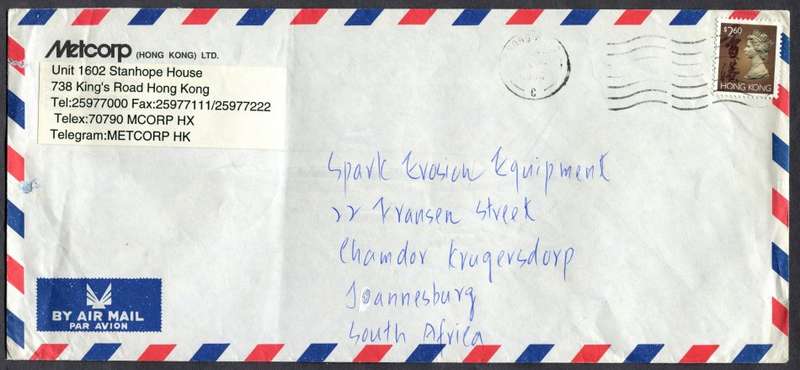 Metcorp (HONG KONG) LTD.
Unit 1602 Stanhope House
738 King's Road Hong Kong
Tel:25977000 Fax:25977111/25977222
Telex:70790 MCORP HX
Telegram:METCORP HK
$2.60
香港
HONG KONG
C
Spark Erosion Equipment
22 Fransen Street
Chamdor Krugersdorp
Joannesburg
South Africa
BY AIR MAIL
PAR AVION